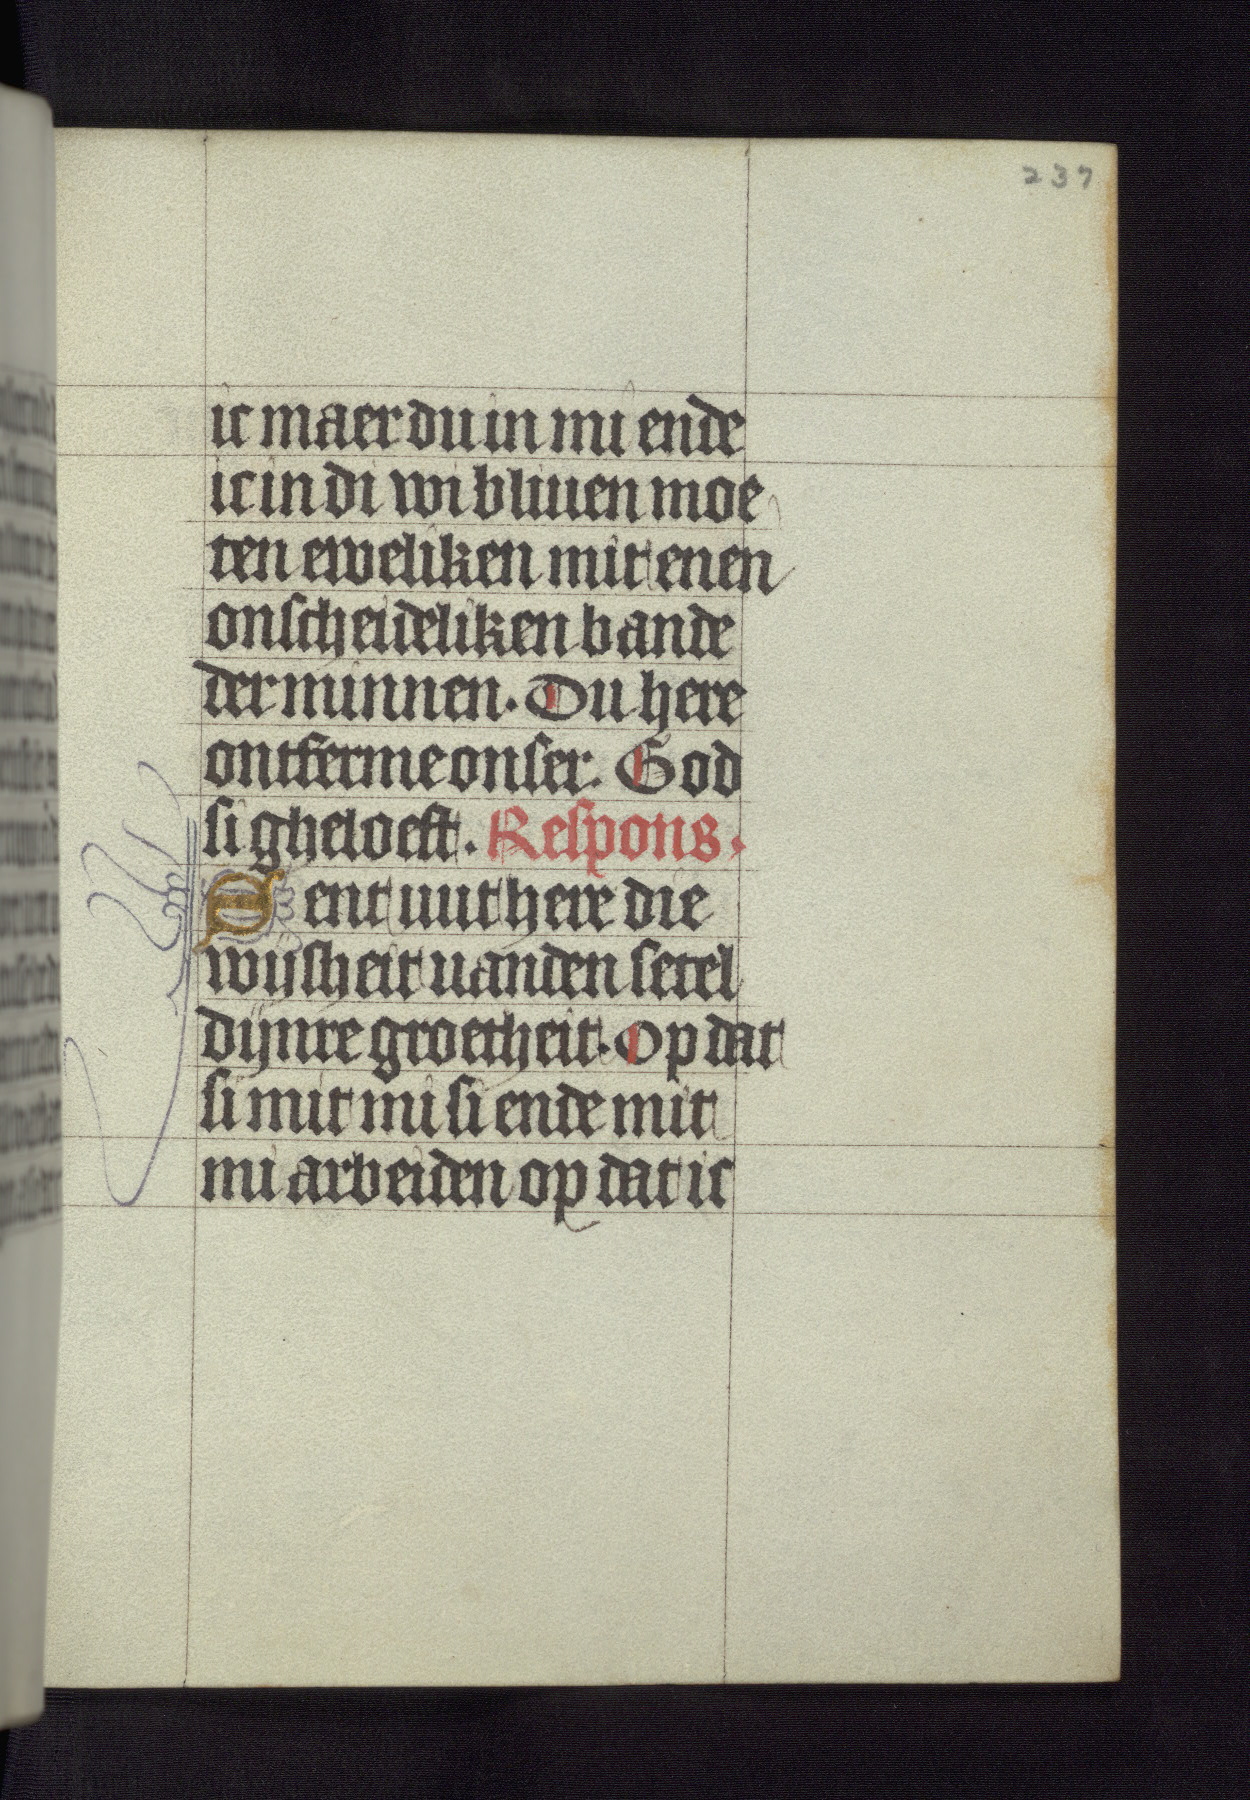 237
ic maer du in mi ende
ic in di wi bliuen moe
ten eweliken mit enen
onscheideliken bande
der minnen. Du here
ontferme onser. God
si gheloeft. Respons.
Sent uut here die
wijsheit uanden setel
dijnre groetheit. Op dat
si mit mi si ende mit
mi arbeiden op dat ic